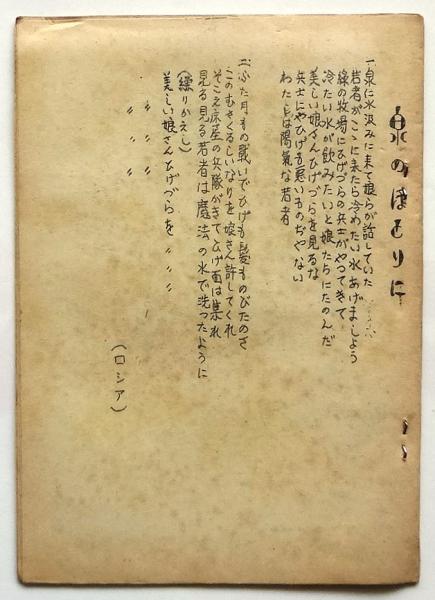 泉のほとりに
一、泉に水汲みに来て娘らが話していた
若者がここに来たら冷めたい水あげましよう
緑の牧場にひげづらの兵士がやつてきて
冷たい水が飲みたいと娘たちにたのんだ
美しい娘さんひげづらを見るな
兵士にやひげも悪いものぢやない
わたしは陽氣な若者
二、ふた月もの戦いでひげも髪ものびたのさ
このむさくるしいなりを娘さん許してくれ
そこえ床屋の兵隊がきてひげ面は集れ
見る見る若者は魔法の水で洗つたように
(繰りかえし)
美しい娘さんひげづらを 〃 〃 〃
〃 〃 〃
〃 〃 〃
(ロシア)